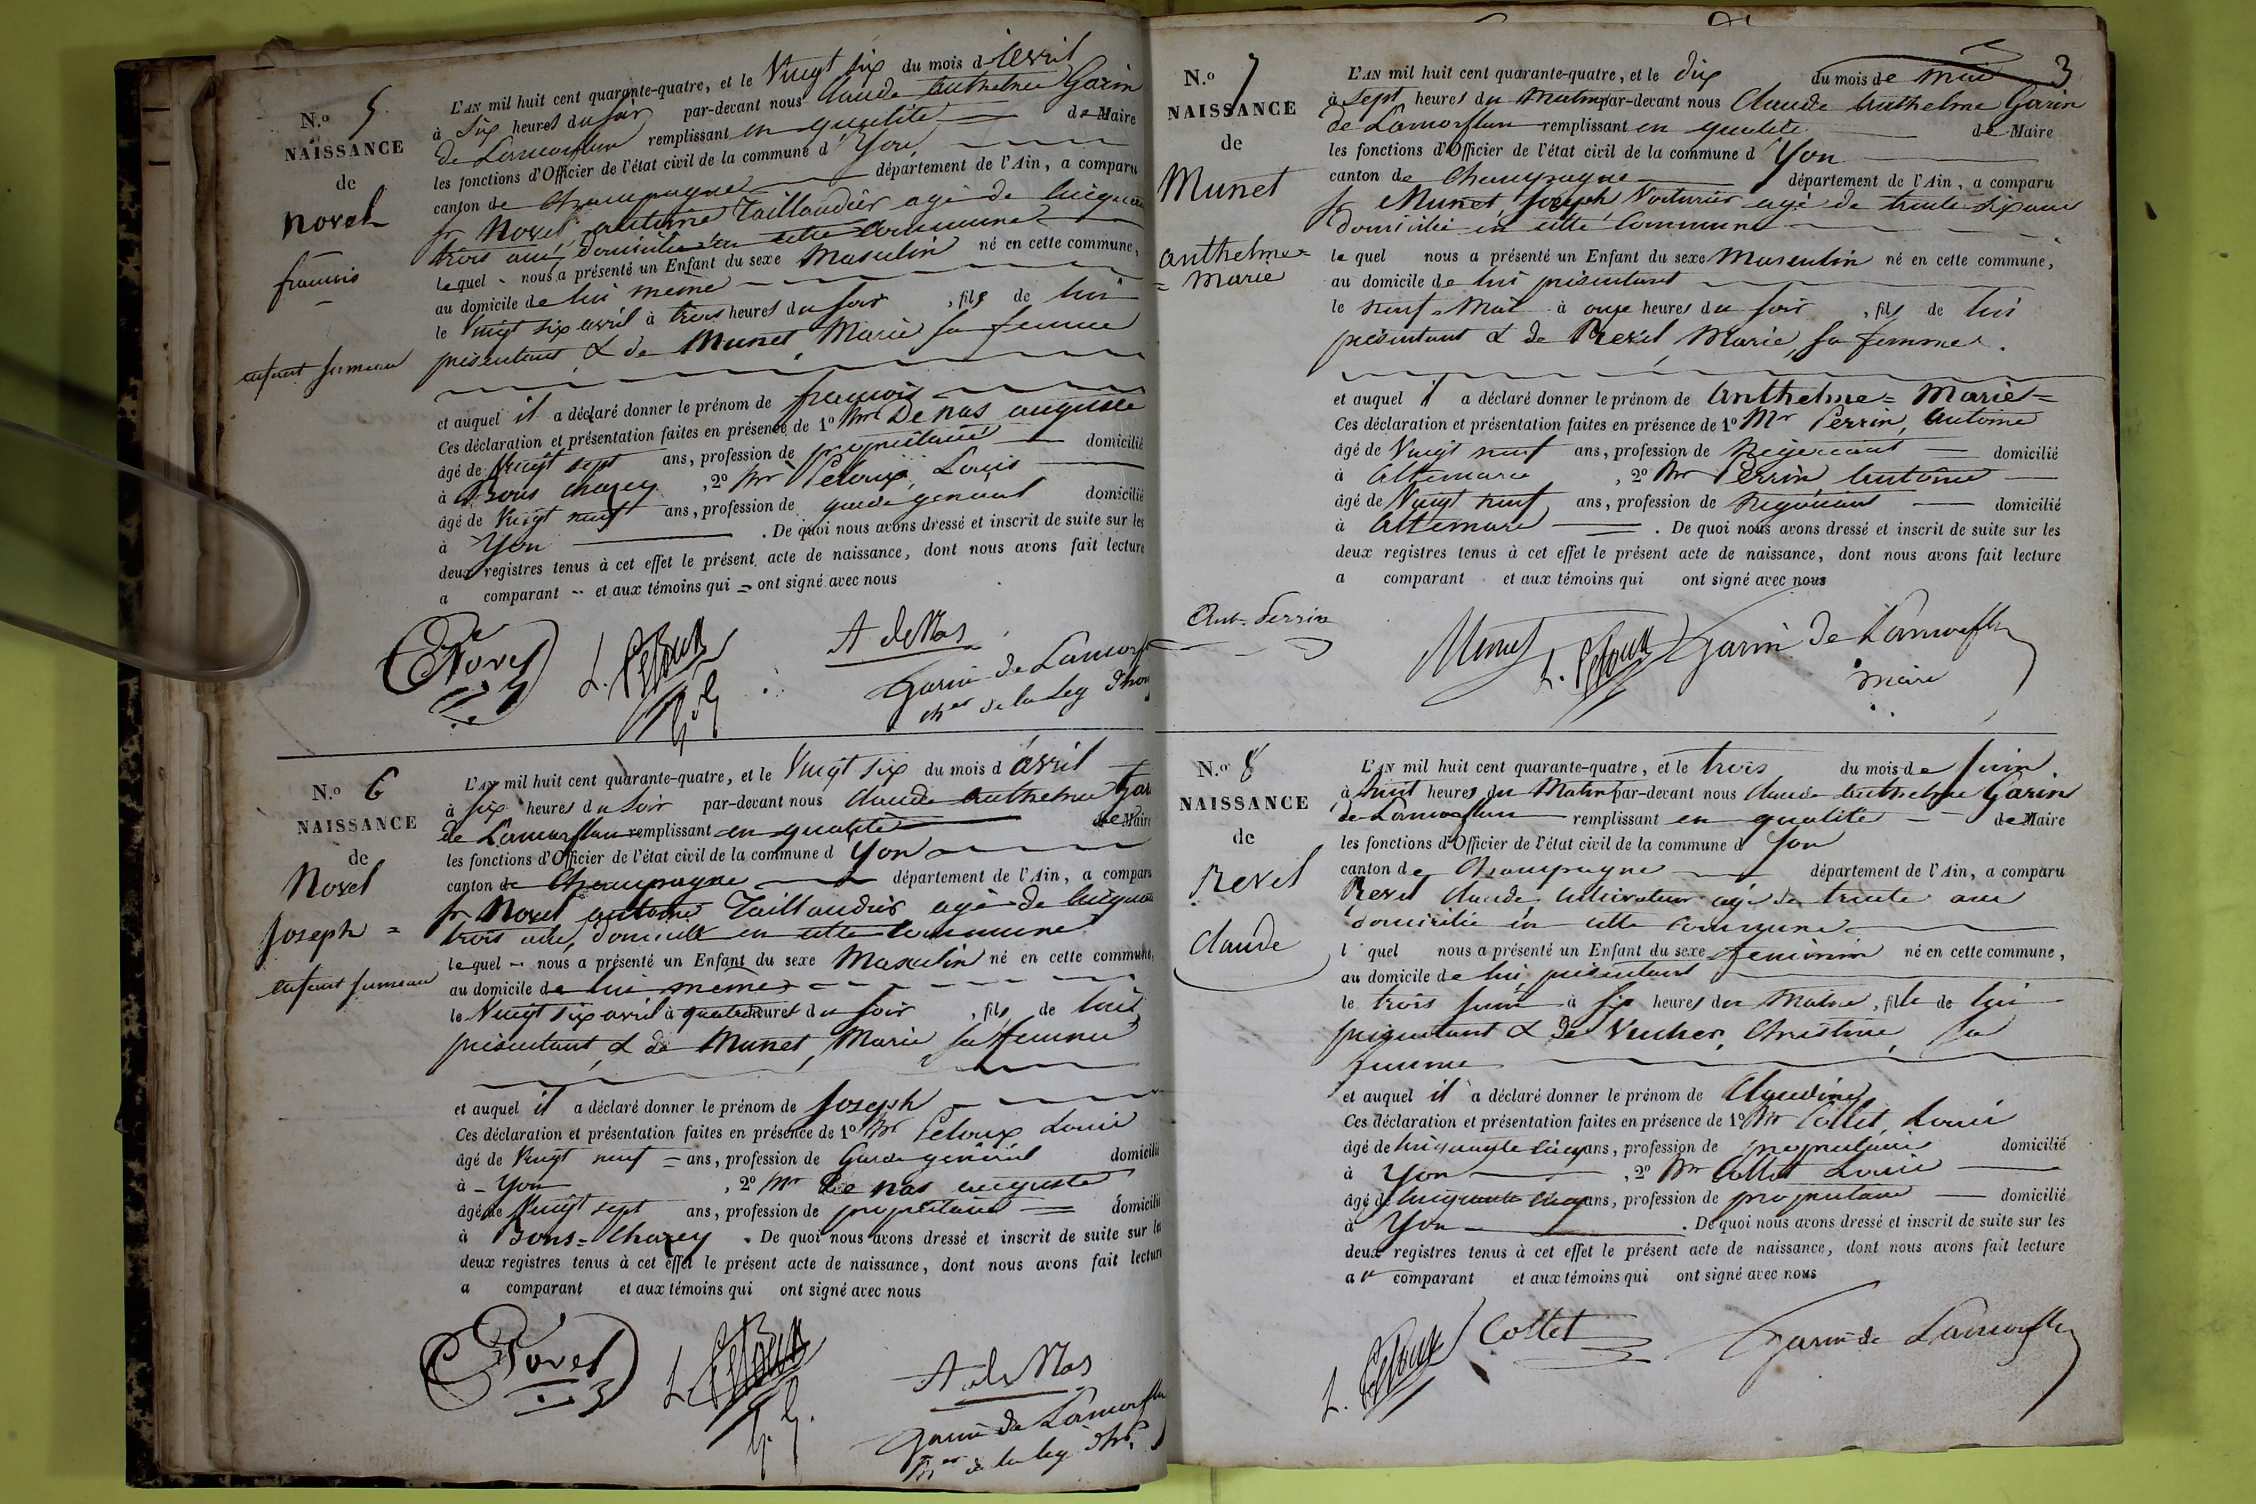 N.o 5
NAISSANCE
de
Novel
francois
enfant jumeau
L'AN mil huit cent quarante-quatre, et le Vingt six du mois d'avril
à Six heures du soir par-devant nous Claude Anthelme Garin
de Lamorflan remplissant en qualité de Maire
les fonctions d'Officier de l'état civil de la commune d'Yon
canton de Champagne département de l'Ain, a comparu
sr Novel antoine Taillandier agé de cinquante
trois ans, domicilié en cette commune
lequel nous a présenté un Enfant du sexe Masculin né en cette commune,
au domicile de lui meme
le Vingt six avril à trois heures du soir, fils de lui
présentant & de Munet, Marie sa femme
et auquel il a déclaré donner le prénom de francois
Ces déclaration et présentation faites en présence de 1o Mr De nas auguste
âgé de Vingt sept ans, profession de propriétaire domicilié
à Sous chazey, 2o Mr Peloux, Louis
âgé de Vingt neuf ans, profession de garde général domicilié
à Yon. De quoi nous avons dressé et inscrit de suite sur les
deux registres tenus à cet effet le présent acte de naissance, dont nous avons fait lecture
a comparant et aux témoins qui ont signé avec nous
Novel L. Peloux A de Nas
G. g. Garin de Lamorfl
cher de la Leg d'hon
N.o 6
NAISSANCE
de
Novel
Joseph =
enfant jumeau
L'AN mil huit cent quarante-quatre, et le Vingt six du mois d'avril
à six heures du soir par-devant nous Claude Anthelme Gar
de Lamorflan remplissant en qualité de Maire
les fonctions d'Officier de l'état civil de la commune d Yon
canton de Champagne département de l'Ain, a comparu
sr Novel antoine Taillandier agé de cinquante
trois ans, domicilié en cette commune
lequel nous a présenté un Enfant du sexe Masculin né en cette commune,
au domicile de lui meme
le Vingt six avril à quatre heures du soir, fils de lui
présentant, & de Munet, Marie sa femme
et auquel il a déclaré donner le prénom de Joseph
Ces déclaration et présentation faites en présence de 1o Mr Peloux Louis
âgé de Vingt neuf ans, profession de Garde général domicilié
à Yon, 2o Mr De nas auguste
âgé de Vingt sept ans, profession de propriétaire domicilié
à Sous=Chazey. De quoi nous avons dressé et inscrit de suite sur les
deux registres tenus à cet effet le présent acte de naissance, dont nous avons fait lecture
a comparant et aux témoins qui ont signé avec nous
Novel L. Peloux A de Nas
G. g. Garin de Lamorflan
cher de la leg d'hr.
3
N.o 7
NAISSANCE
de
Munet
anthelme=
= Marie
L'AN mil huit cent quarante-quatre, et le dix du mois de Mai
à sept heures du Matin par-devant nous Claude Anthelme Garin
de Lamorflan remplissant en qualité de Maire
les fonctions d'Officier de l'état civil de la commune d'Yon
canton de Champagne département de l'Ain, a comparu
sr Munet, Joseph Voiturier agé de trente six ans
domicilié en cette Commune
lequel nous a présenté un Enfant du sexe Masculin né en cette commune,
au domicile de lui présentant
le neuf Mai à onze heures du soir, fils de lui
présentant & de Revel, Marie, sa femme.
et auquel il a déclaré donner le prénom de Anthelme= Marie=
Ces déclaration et présentation faites en présence de 1o Mr Perrin, Antoine
âgé de Vingt neuf ans, profession de Négociant domicilié
à Artemare, 2o Mr Perrin Antoine
âgé de Vingt neuf ans, profession de Négociant domicilié
à Artemare. De quoi nous avons dressé et inscrit de suite sur les
deux registres tenus à cet effet le présent acte de naissance, dont nous avons fait lecture
a comparant et aux témoins qui ont signé avec nous
Ant. Perrin
Munet L. Peloux Garin de Lamorflan
maire
N.o 8
NAISSANCE
de
Revel
Claude
L'AN mil huit cent quarante-quatre, et le trois du mois de Juin
à huit heures du Matin par-devant nous Claude Anthelme Garin
de Lamorflan remplissant en qualité de Maire
les fonctions d'Officier de l'état civil de la commune d Yon
canton de Champagne département de l'Ain, a comparu
Revel Claude, cultivateur agé de trente ans
domicilié en cette commune
l quel nous a présenté un Enfant du sexe féminin né en cette commune,
au domicile de lui présentant
le trois Juin à six heures du Matin, fille de lui
présentant & de Vucher, Christine, sa
femme
et auquel il a déclaré donner le prénom de Claudine
Ces déclaration et présentation faites en présence de 1o Mr Collet, Louis
âgé de cinquante cinq ans, profession de propriétaire domicilié
à Yon, 2o Mr Collet Louis
âgé de cinquante cinq ans, profession de propriétaire domicilié
à Yon. De quoi nous avons dressé et inscrit de suite sur les
deux registres tenus à cet effet le présent acte de naissance, dont nous avons fait lecture
au comparant et aux témoins qui ont signé avec nous
L. Peloux Collet Garin de Lamorflan